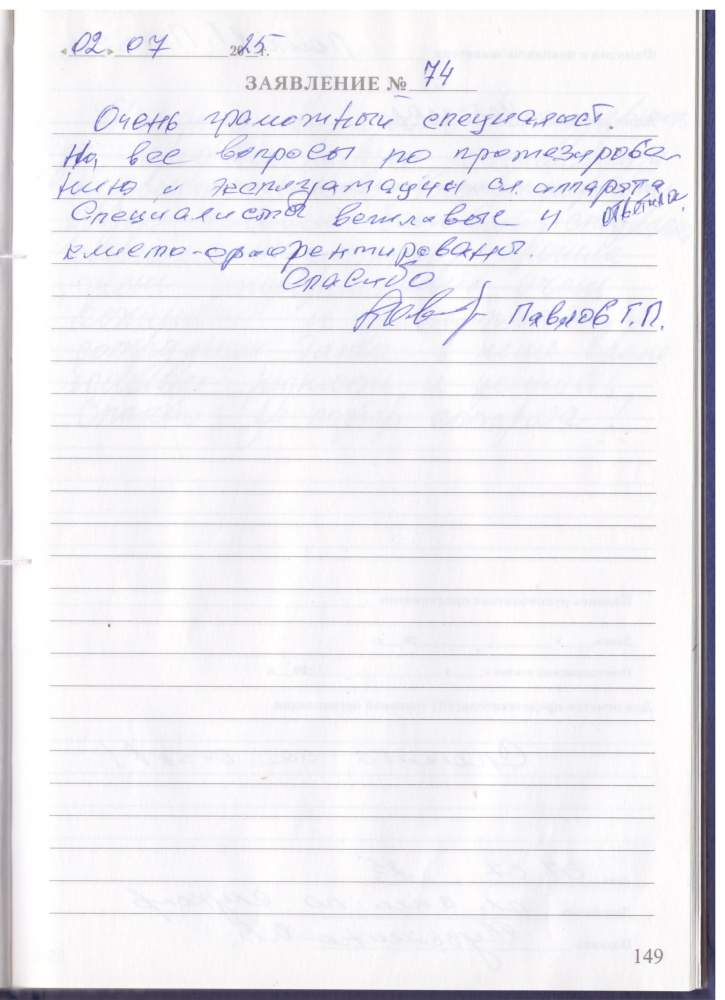 «02» 07 2025 г.
ЗАЯВЛЕНИЕ № 74
Очень грамотный специалист.
На все вопросы по протезирова-
нию и эксплуатации сл. аппарата
ответила.
Специалисты вежливые и
клиенто-ориентированы.
Спасибо
Павлов Г.П.
149